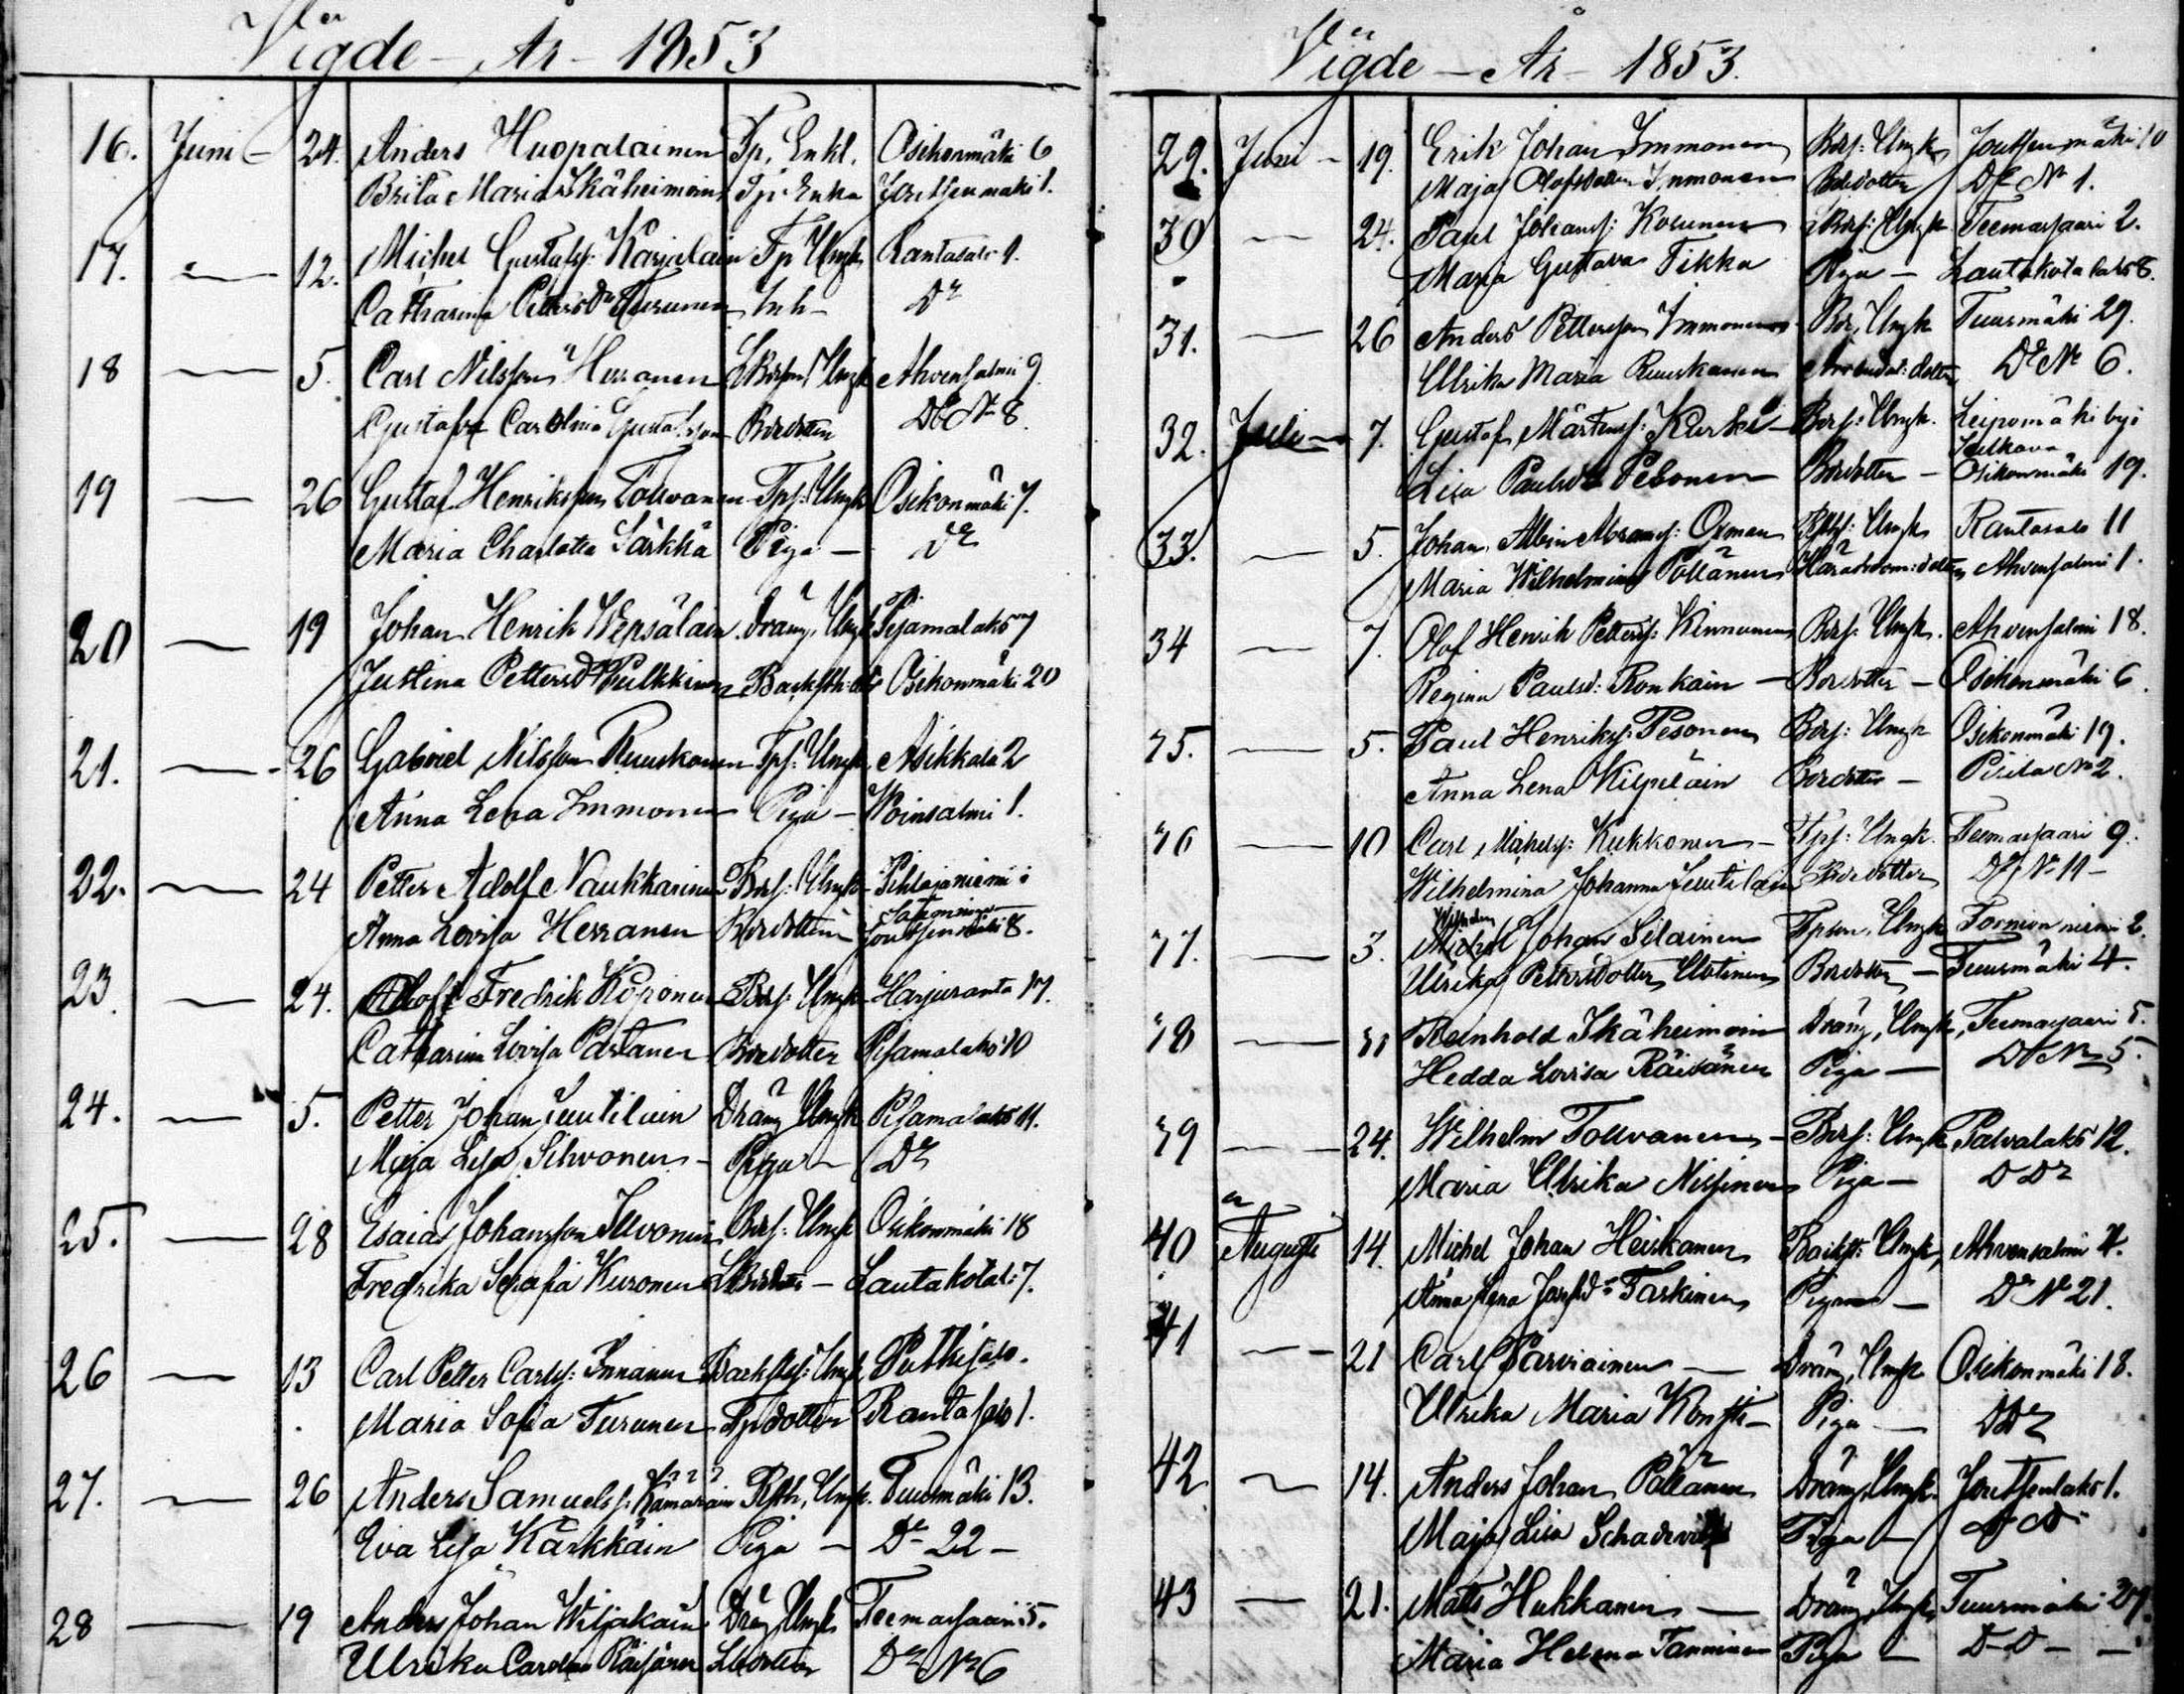 Vigde - År - 1853
16. Juni - 24. Anders Huopalainen Tp. Enkl. Osikonmäki 6
Brita Maria Ikäheimoin Tp. Enka Joutsenmäki 1.
17. — 12. Michel Gustafss: Karjalain Tp Ungk Rantasalo 1.
Catharina Pettersdr Turunen Inh - Do
18 — 5. Carl Nilsson Herranen Ungk Ahvensalmi 9
Gustafva Carolina Bdedotter Do No 8.
19 — 26 Gustaf Henriksson Tolvanen Tps: Ungk Osikonmäki 7.
Maria Charlotta Särkkä Piga — Do
20 — 19 Johan Henrik Wepsäläin Dräng, Ungk Pisamalaks 7
Justina Pettersdr Pulkkinen Osikonmäki 20
21. — 26 Gabriel Nilsson Ruuskanen Tps: Ungk Asikkala 2
Anna Lena Immonen Piga — Woinsalmi 1.
22. — 24 Petter Adolf Naukkarinen Bds: Ungk Pihlajaniemi i
Anna Lovisa Herranen Bdedotter Joutsenmäki 8.
23 — 24. Adolf Fredrik Koponen Bds: Ungk Harjuranta 17.
Catharina Lovisa Partanen Bdedotter Pisamalaks 10
24. — 5. Petter Johan Juutilain Dräng Ungk Pisamalaks 11.
Maja Lisa Sihvonen — Piga — Do
25. — 28 Esaias Johansson Ilvonen Bds: Ungk Osikonmäki 18
Fredrika Serafia Kuronen — Lautakotal: 7.
26 — 13 Carl Petter Carlss: Innanen Backsts: Ungk Putkisalo.
Maria Sofia Turunen Tpdotter Rantasalo 1.
27. — 26 Anders Samuelss: Kämäräin Ungk. Tuusmäki 13.
Eva Lisa Kärkkäin Piga — Do 22 —
28 — 19 Anders Johan Wiljakain Dräng Ungk Teemassaari 5.
Ulrika Carolina Räisänen Do No 6
Vigde - År - 1853.
29. Juni - 19. Erik Johan Immonen Bds: Ungk Joutsenmäki 10
Maja Olofsdotter Immonen Bdedotter Do No 1.
30 — 24. Paul Johanss: Kosunen Bds: Ungk Teemassaari 2.
Maria Gustava Tikka Piga — Lautakotalaks 8.
31. — 26 Anders Pettersson Immonen Bds, Ungk Tuusmäki 29.
Ulrika Maria Ruuskanen dotter Do No 6.
32. Juli — 7. Gustaf Mårtenss: Kurki — Bds: Ungk. Leipomäki by i
Sulkava
Lisa Paulsdr Pesonen Bdedotter — Osikonmäki 19.
33. — 5. Johan Albin Abramss: Oxman Ungk Rantasalo 11
Maria Wilhelmina Pöllänen Häradsdom: dotter Ahvensalmi 1.
34 — 7. Olof Henrik Petterss: Kinnunen Bds: Ungk. Ahvensalmi 18.
Regina Paulsd: Ronkain — Bdedotter — Osikonmäki 6.
35. — 5. Paul Henrikss: Pesonen Bds: Ungk Osikonmäki 19.
Anna Lena Kilpeläin Bdedotter — Pirila No 2.
36 — 10 Carl Michelss: Kukkonen — Tps: Ungk. Teemassaari 9.
Wilhelmina Johanna Juutilain Bdedotter Do No 11 —
37. — 3. Michel Johan Silainen Ungk Tornionniemi 2.
Ulrika Pettersdotter Utotinen Bdedotter — Tuusmäki 4.
38 — 31 Reinhold Ikäheimoin Dräng, Ungk, Teemassaari 5.
Hedda Lovisa Räisänen Piga — Do No 5.
39 — 24. Wilhelm Tolvanen — Bds: Ungk Patvalaks 12.
Maria Ulrika Nissinen Piga — D Do
40 Augusti 14. Michel Johan Heiskanen Backsts: Ungk, Ahvensalmi 4.
Anna Lena Josefsdr Taskinen Pigan — Do No 21.
41 — 21 Carl Parviainen — Dräng, Ungk Osikonmäki 18.
Ulrika Maria Konsti — Piga — D Do
42 — 14. Anders Johan Pöllänen Dräng, Ungk. Joutsenlaks 1.
Maja Lisa Schadewitz Piga — D D
43 — 21. Matts Hukkanen — Dräng, Ungk, Tuusmäki 29.
Maria Helena Tanninen Piga — D - D —